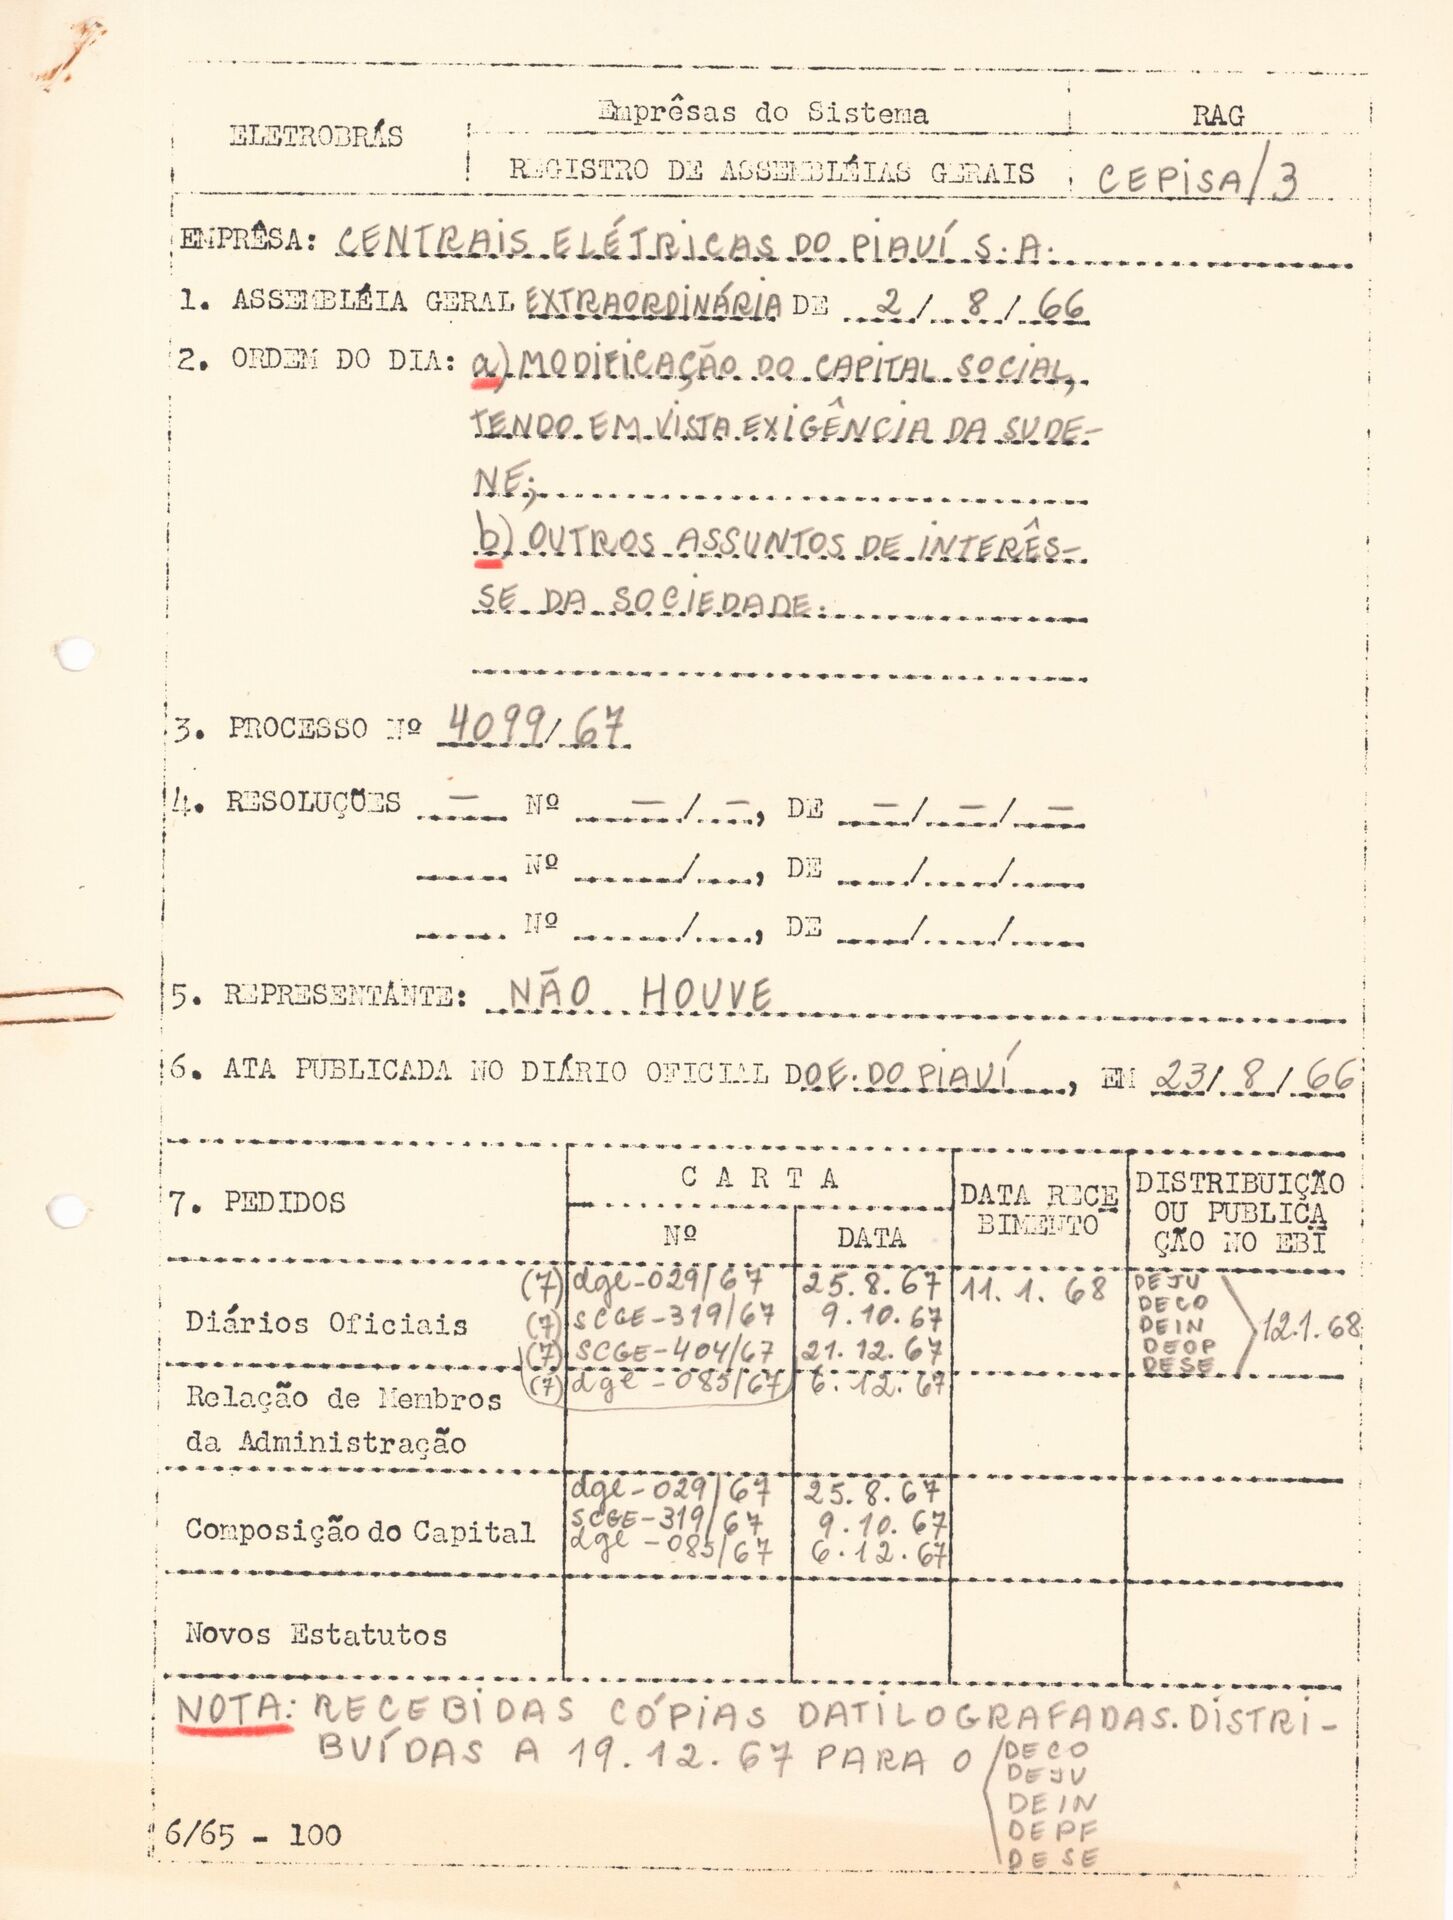 ELETROBRÁS
Emprêsas do Sistema
RAG
REGISTRO DE ASSEMBLÉIAS GERAIS
CEPISA/3
EMPRÊSA: CENTRAIS ELÉTRICAS DO PIAUÍ S.A.
1. ASSEMBLÉIA GERAL EXTRAORDINÁRIA DE 2/8/66
2. ORDEM DO DIA: a) MODIFICAÇÃO DO CAPITAL SOCIAL,
TENDO EM VISTA EXIGÊNCIA DA SUDE-
NE;
b) OUTROS ASSUNTOS DE INTERÊS-
SE DA SOCIEDADE.
3. PROCESSO Nº 4099/67
4. RESOLUÇÕES — Nº —/—, DE —/—/—
Nº /, DE / /
Nº /, DE / /
5. REPRESENTANTE: NÃO HOUVE
6. ATA PUBLICADA NO DIÁRIO OFICIAL DO E. DO PIAUÍ, EM 23/8/66
7. PEDIDOS
CARTA
Nº
DATA
DATA RECE
BIMENTO
DISTRIBUIÇÃO
OU PUBLICA
ÇÃO NO EBI
Diários Oficiais
(7) dge-029/67 25.8.67 11.1.68
(7) SCGE-319/67 9.10.67
(7) SCGE-404/67 21.12.67
DEJU
DECO
DEIN
DEOP
DESE
12.1.68
Relação de Membros
da Administração
(7) dge-085/67 6.12.67
Composição do Capital
dge-029/67 25.8.67
SCGE-319/67 9.10.67
dge-085/67 6.12.67
Novos Estatutos
NOTA: RECEBIDAS CÓPIAS DATILOGRAFADAS. DISTRI-
BUÍDAS A 19.12.67 PARA O
DECO
DEJU
DEIN
DEPF
DESE
6/65 - 100